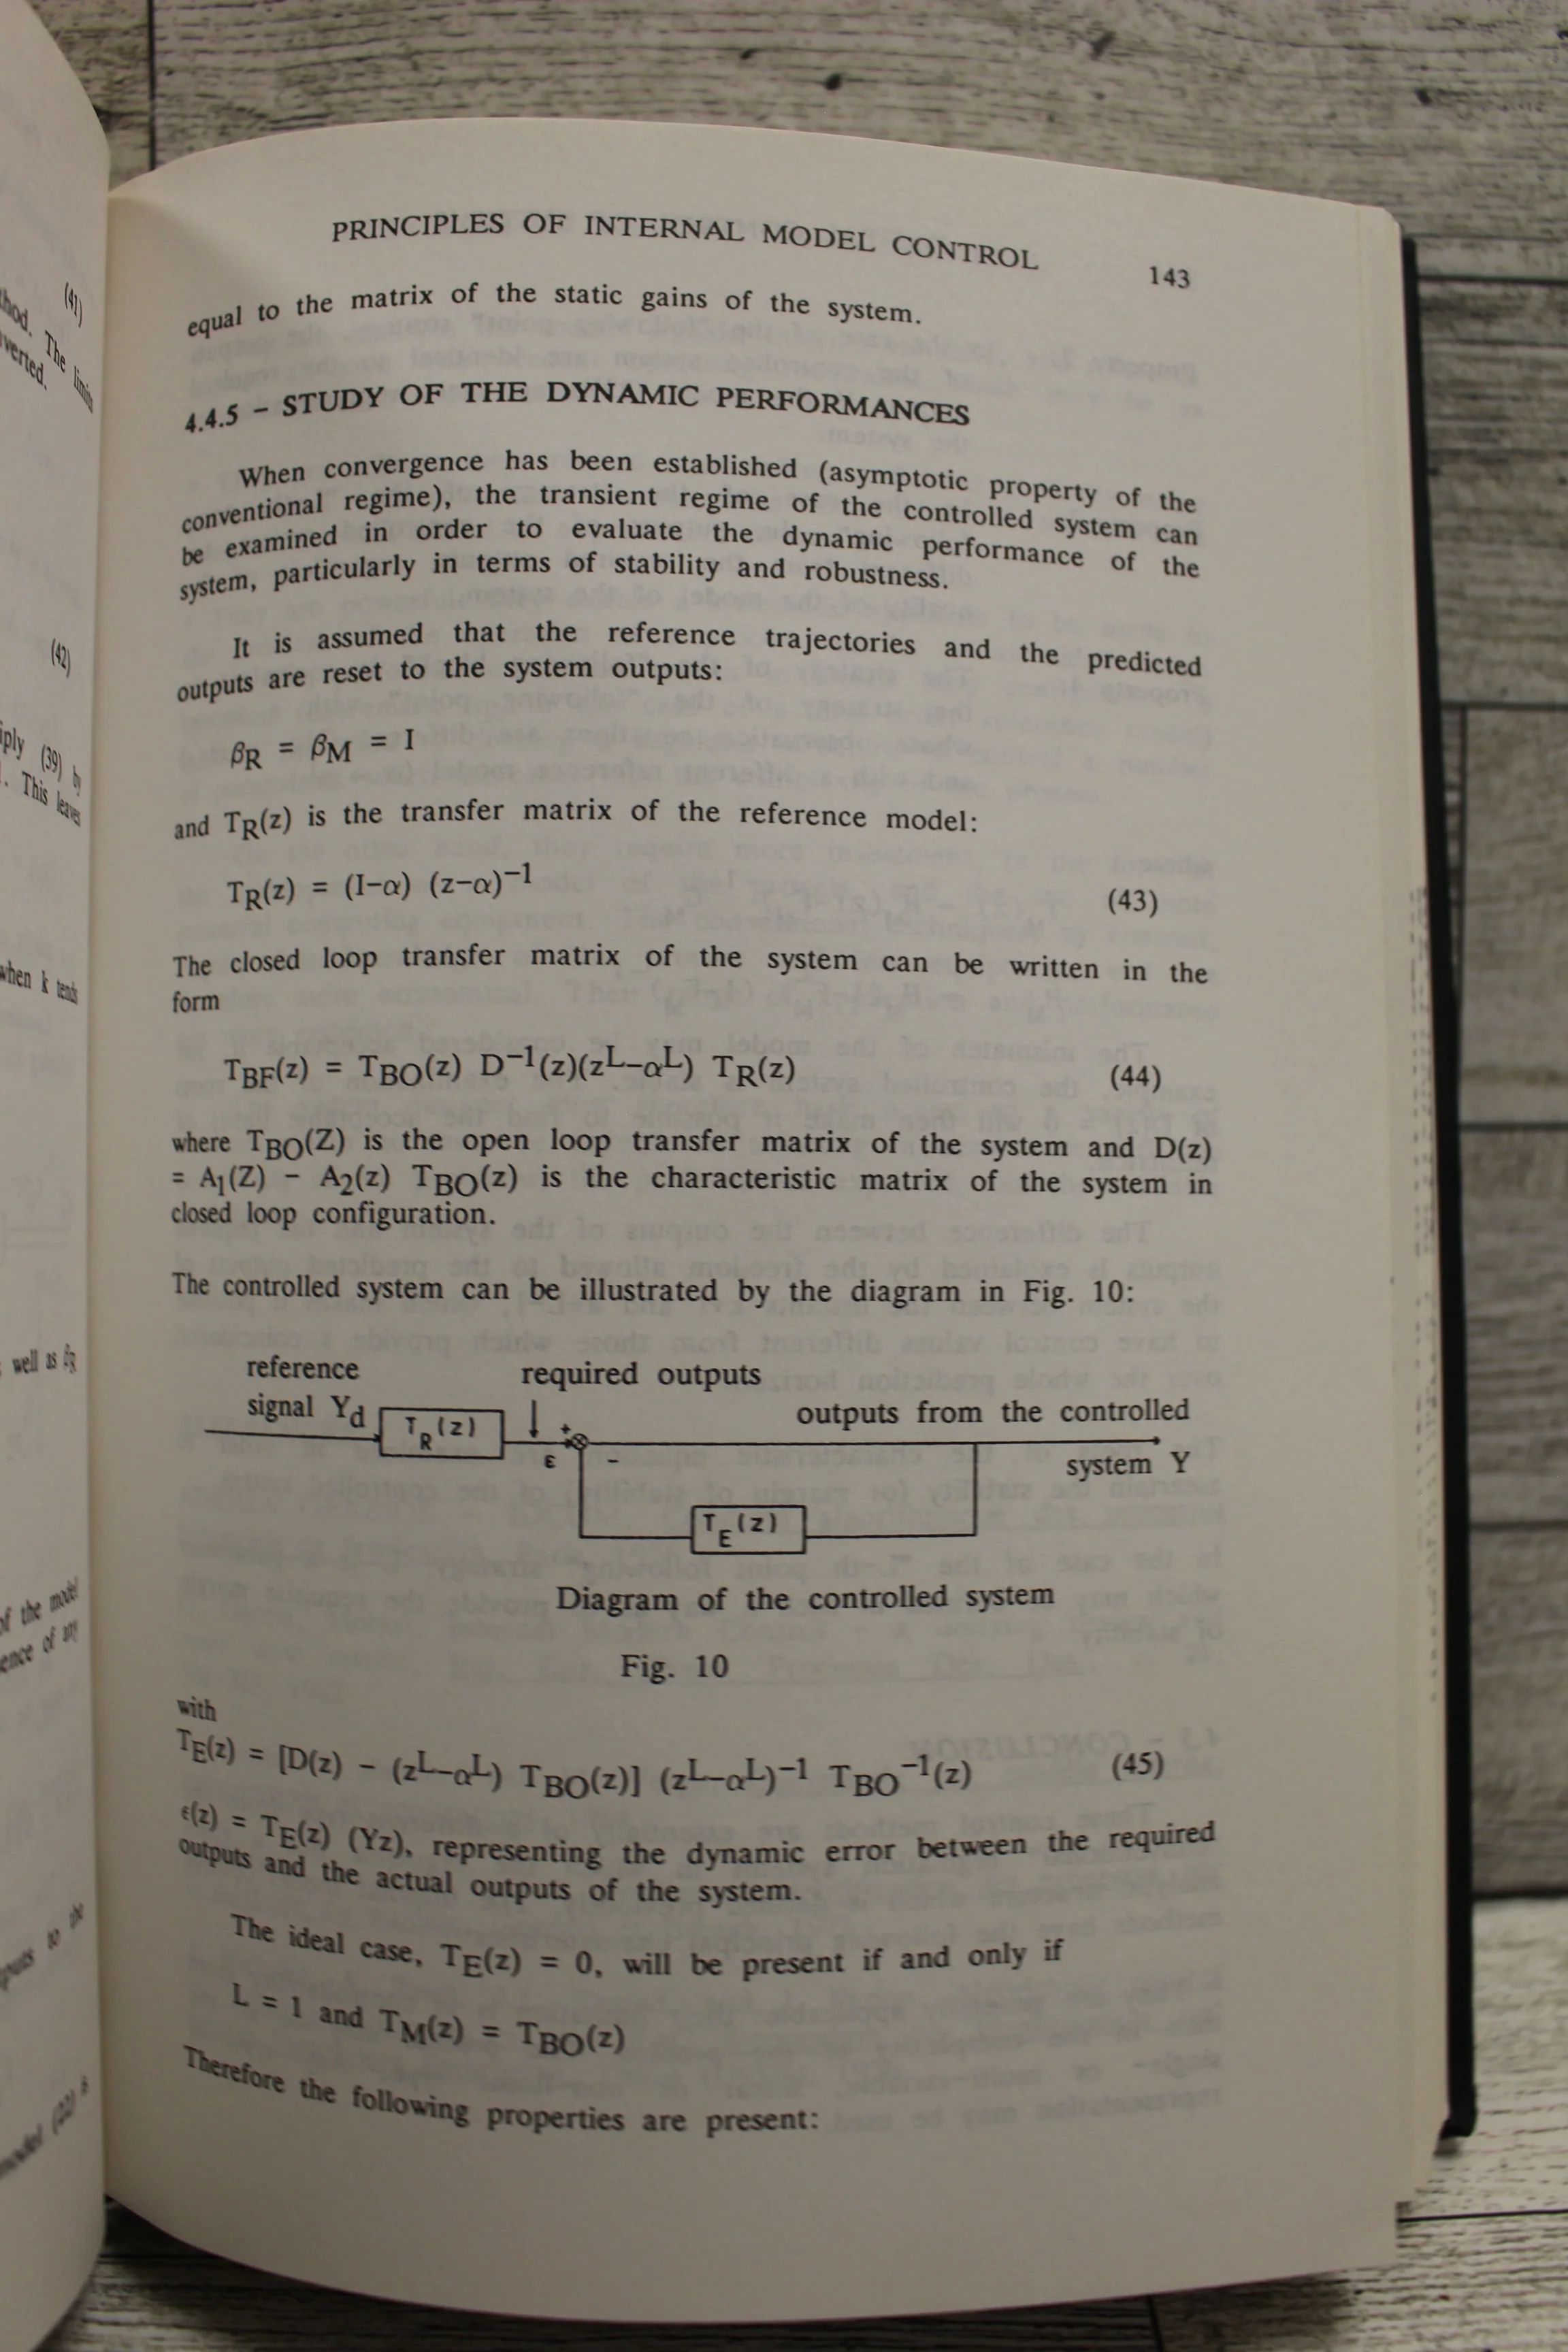 (41)
The limits
verted.
(42)
(39) by
This leaves
when k tends
well as
of the model
to the
model (22)
PRINCIPLES OF INTERNAL MODEL CONTROL
143
equal to the matrix of the static gains of the system.
4.4.5 - STUDY OF THE DYNAMIC PERFORMANCES
When convergence has been established (asymptotic property of the
conventional regime), the transient regime of the controlled system can
be examined in order to evaluate the dynamic performance of the
system, particularly in terms of stability and robustness.
It is assumed that the reference trajectories and the predicted
outputs are reset to the system outputs:
βR = βM = I
and TR(z) is the transfer matrix of the reference model:
TR(z) = (I-α) (z-α)⁻¹ (43)
The closed loop transfer matrix of the system can be written in the
form
TBF(z) = TBO(z) D⁻¹(z)(zᴸ-αᴸ) TR(z) (44)
where TBO(Z) is the open loop transfer matrix of the system and D(z)
= A₁(Z) - A₂(z) TBO(z) is the characteristic matrix of the system in
closed loop configuration.
The controlled system can be illustrated by the diagram in Fig. 10:
reference
signal Yd
TR(z)
required outputs
+
ε
-
outputs from the controlled
system Y
TE(z)
Diagram of the controlled system
Fig. 10
with
TE(z) = [D(z) - (zᴸ-αᴸ) TBO(z)] (zᴸ-αᴸ)⁻¹ TBO⁻¹(z) (45)
ε(z) = TE(z) (Yz), representing the dynamic error between the required
outputs and the actual outputs of the system.
The ideal case, TE(z) = 0, will be present if and only if
L = 1 and TM(z) = TBO(z)
Therefore the following properties are present: